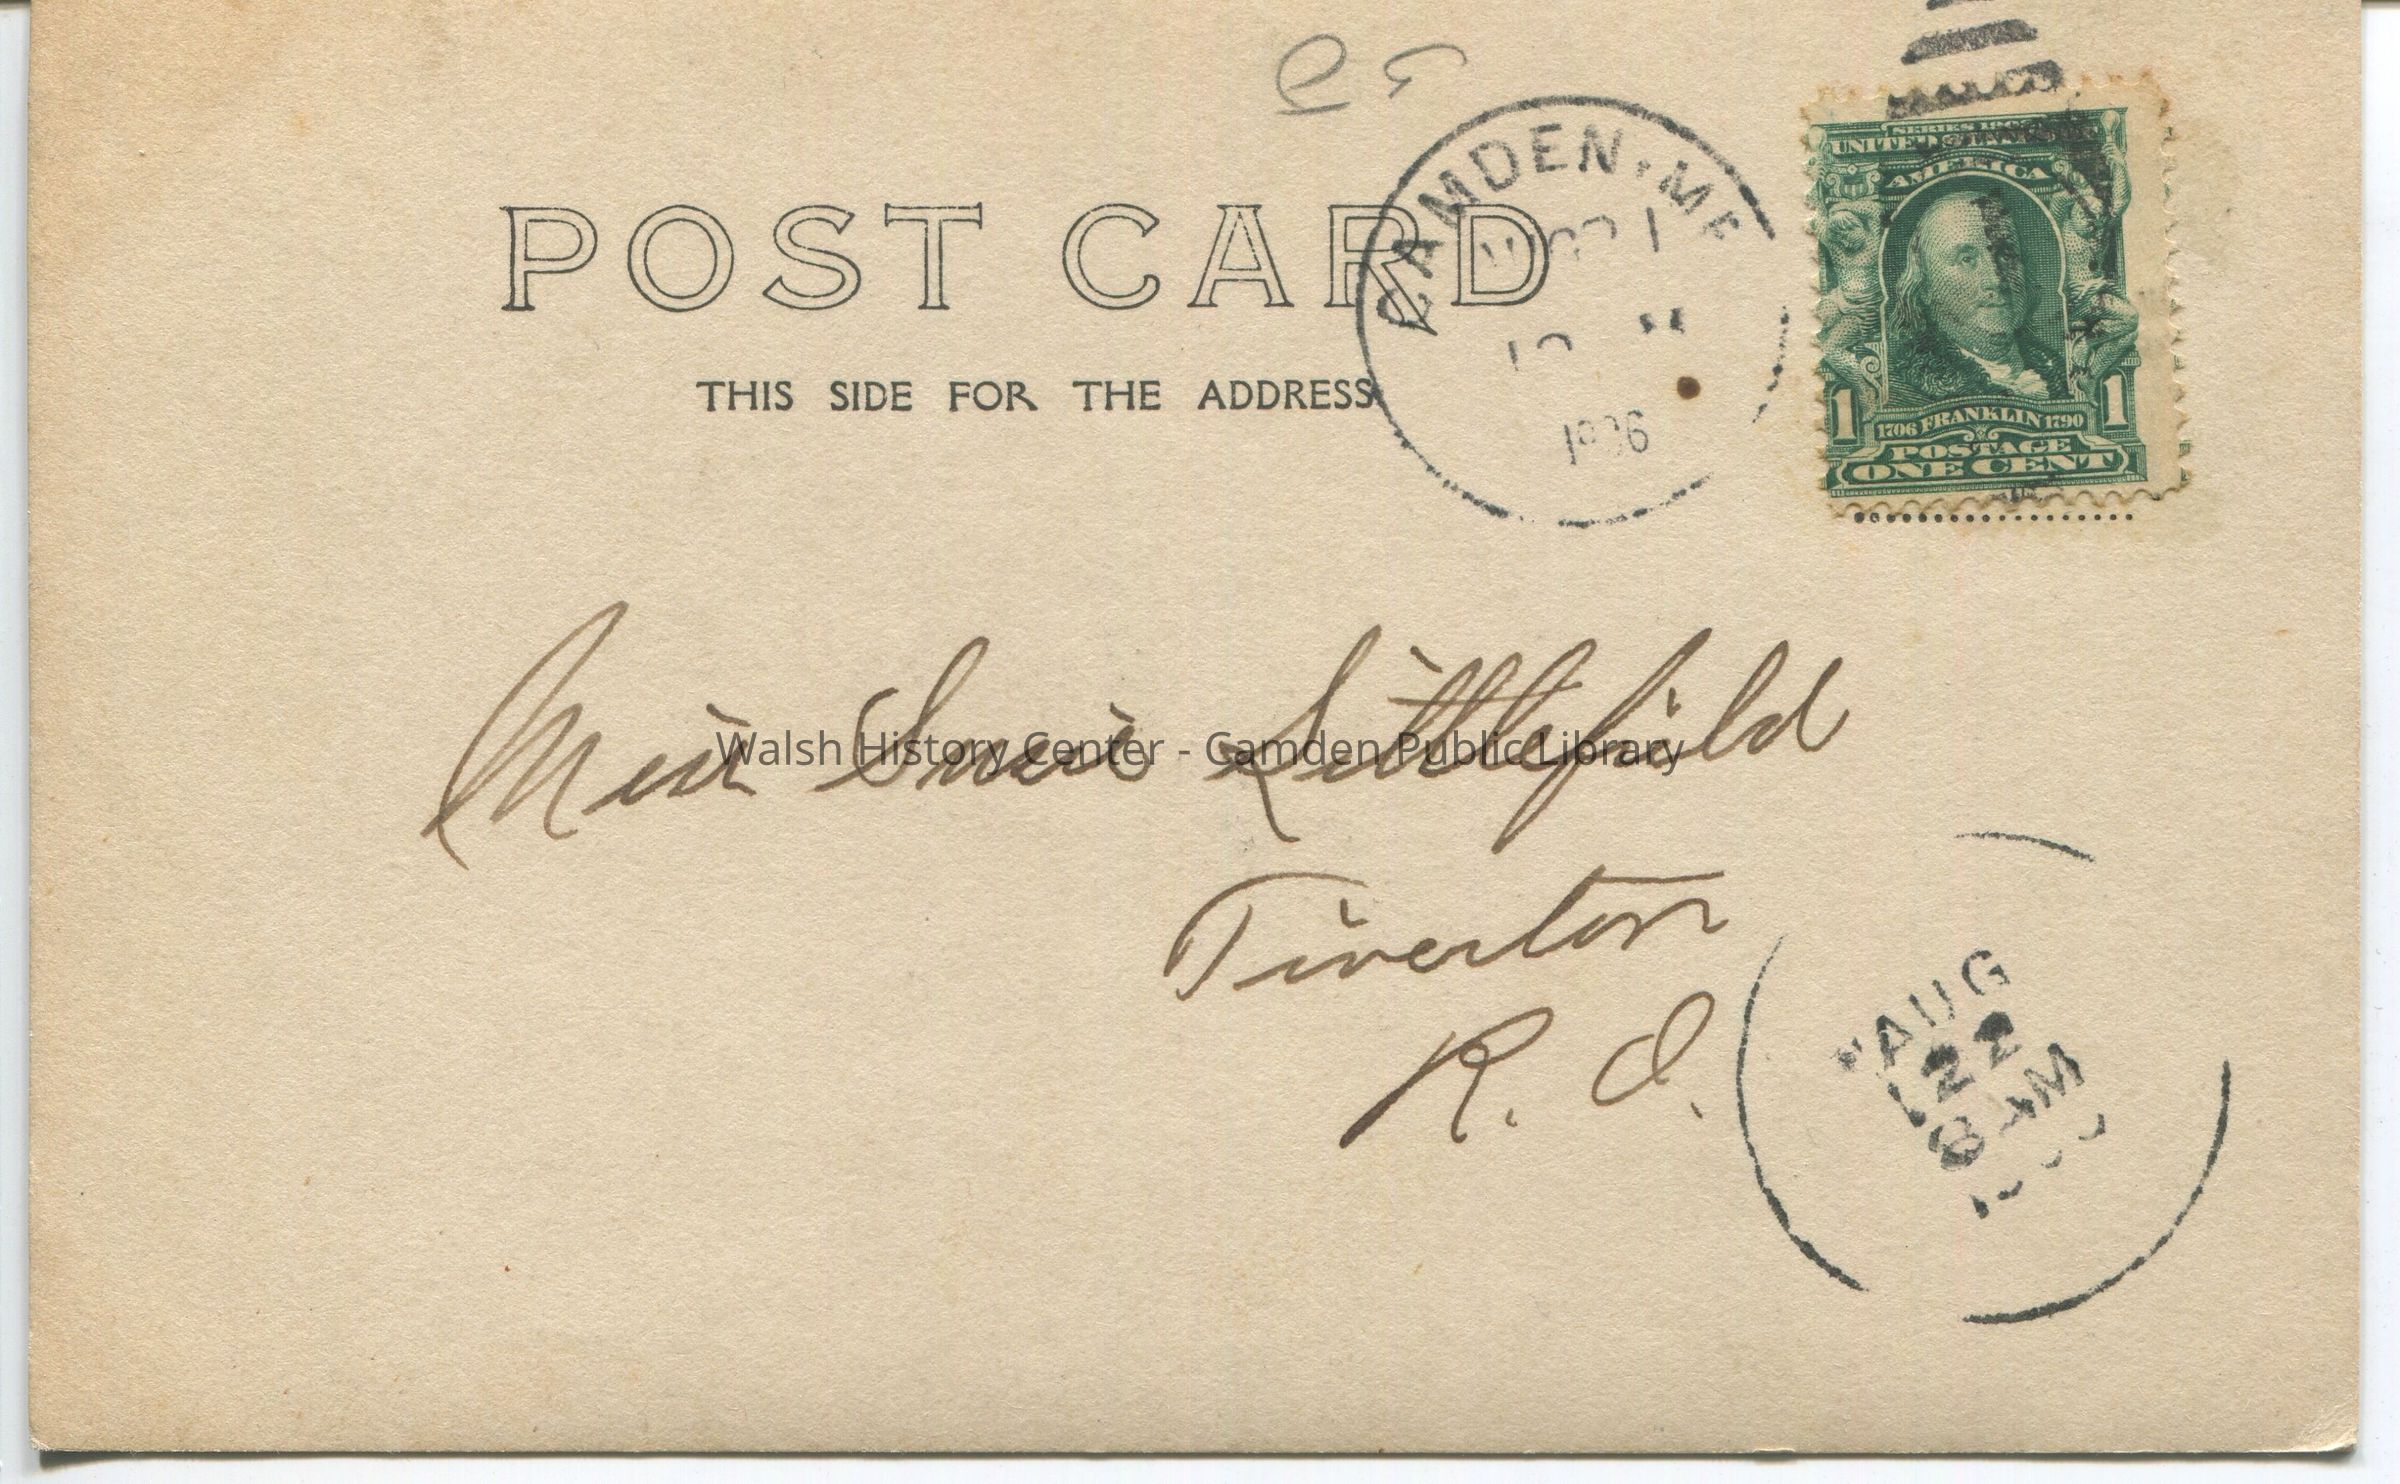 CAMDEN, ME
1906
SERIES 1902
UNITED STATES OF
AMERICA
1 1
1706 FRANKLIN 1790
POSTAGE
ONE CENT
POST CARD
THIS SIDE FOR THE ADDRESS
Miss Susie Littlefield
Walsh History Center - Camden Public Library
Tiverton
R. I.
AUG
22
8 AM